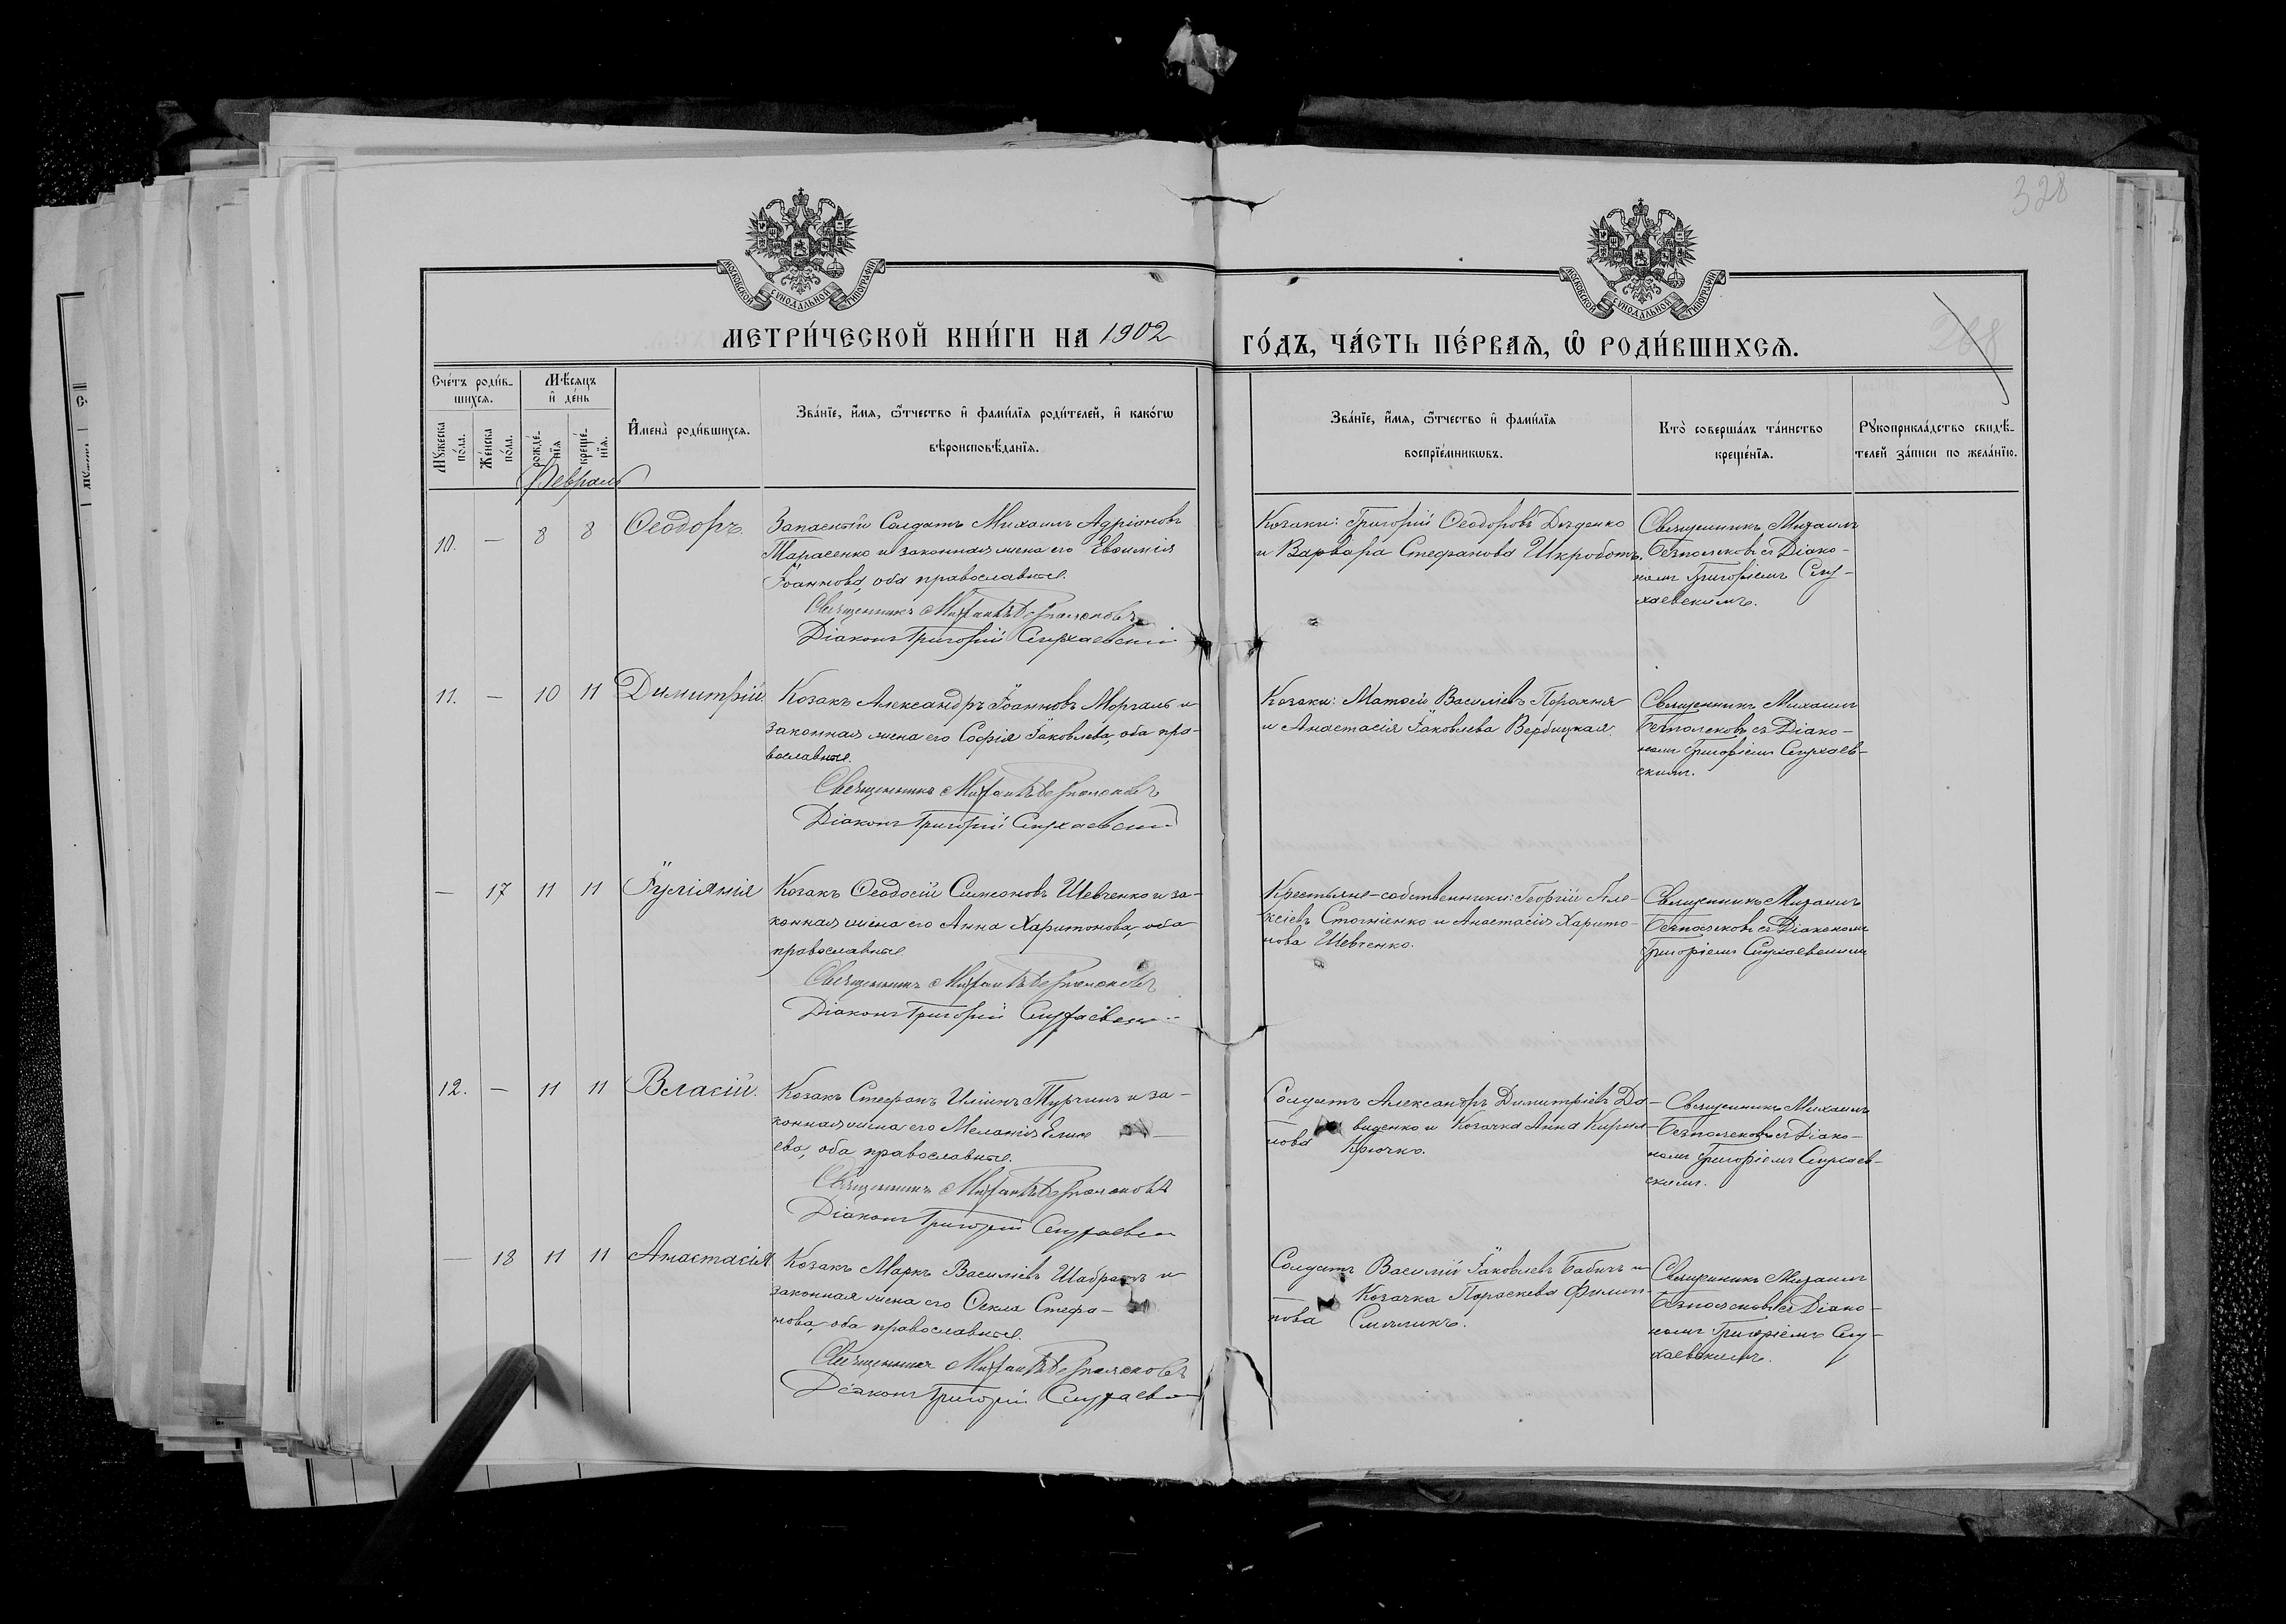 328
МОСКОВСКОЙ СУНОДАЛЬНОЙ ТИПОГРАФІИ
МОСКОВСКОЙ СУНОДАЛЬНОЙ ТИПОГРАФІИ
МЕТРИ́ЧЕСКОЙ КНИ́ГИ НА 1902
ГО́ДЪ, ЧА́СТЬ ПЕ́РВАѦ, Ѡ҆ РОДИ́ВШИХСѦ.
268
Сче́тъ роди́в-
шихсѧ.
Мѣ́сѧцъ
и҆ де́нь
Мꙋ́жеска
по́ла.
Же́нска
по́ла.
рожде́-
нїѧ
креще́-
нїѧ.
И҆мена̀ роди́вшихсѧ.
Зва́нїе, и҆́мѧ, ѻ҆́тчество и҆ фами́лїѧ роди́телей, и҆ како́гѡ
вѣроисповѣ́данїѧ.
Зва́нїе, и҆́мѧ, ѻ҆́тчество и҆ фами́лїѧ
воспрїе́мникѡвъ.
Кто̀ соверша́лъ та́инство
креще́нїѧ.
Рꙋкоприкла́дство свидѣ́-
телей за́писи по жела́нїю.
Февраль
10. — 8 8 Ѳеодоръ.
Запасный Солдатъ Михаилъ Адріановъ
Тарасенко и законная жена его Евѳимія
Іоаннова, оба православные.
Священникъ Михаилъ Безпалековъ
Діаконъ Григорій Слухаевскій
Козаки: Григорій Ѳеодоровъ Дзденко
и Варвара Стефанова Шкроботъ.
Священникъ Михаилъ
Безпалековъ съ Діако-
номъ Григоріемъ Слу-
хаевскимъ.
11. — 10 11 Димитрій.
Козакъ Александръ Іоанновъ Моргаль и
законная жена его Софія Іаковлева, оба пра-
вославные.
Священникъ Михаилъ Безпалековъ
Діаконъ Григорій Слухаевскій
Козаки: Матѳей Василіевъ Порожня
и Анастасія Іаковлева Вербицкая.
Священникъ Михаилъ
Безпалековъ съ Діако-
номъ Григоріемъ Слухаев-
скимъ.
— 17 11 11 Іуліанія
Козакъ Ѳеодосій Симеоновъ Шевченко и за-
конная жена его Анна Харитонова, оба
православные.
Священникъ Михаилъ Безпалековъ
Діаконъ Григорій Слухаевскі
Крестьяне-собственники: Георгій Але-
ксіевъ Стогніенко и Анастасія Харито-
нова Шевченко.
Священникъ Михаилъ
Безпалековъ съ Діакономъ
Григоріемъ Слухаевскимъ
12. — 11 11 Власій.
Козакъ Стефанъ Иліинъ Турчинъ и за-
конная жена его Меланія
ева, оба православные.
Священникъ Михаилъ Безпалековъ
Діаконъ Григорій Слухаевск
Солдатъ Александръ Димитріевъ Да-
виденко и Козачка Анна Кирил-
лова Крючко.
Священникъ Михаилъ
Безпалековъ съ Діако-
номъ Григоріемъ Слухаев-
скимъ.
— 18 11 11 Анастасія
Козакъ Маркъ Василіевъ Шабратъ и
законная жена его Ѳекла Стефа-
нова, оба православные.
Священникъ Михаилъ Безпалековъ
Діаконъ Григорій Слухаев
Солдатъ Василій Іаковлевъ Бабичъ и
Козачка Параскева Филип-
пова
Священникъ Михаилъ
Безпалековъ съ Діако-
номъ Григоріемъ Слу-
хаевскимъ.